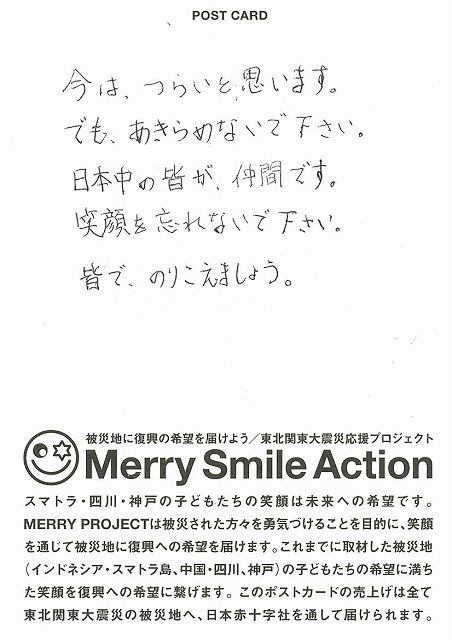 POST CARD
今は、つらいと思います。
でも、あきらめないで下さい。
日本中の皆が、仲間です。
笑顔を忘れないで下さい。
皆で、のりこえましょう。
被災地に復興の希望を届けよう／東北関東大震災応援プロジェクト
Merry Smile Action
スマトラ・四川・神戸の子どもたちの笑顔は未来への希望です。
MERRY PROJECTは被災された方々を勇気づけることを目的に、笑顔
を通じて被災地に復興への希望を届けます。これまでに取材した被災地
（インドネシア・スマトラ島、中国・四川、神戸）の子どもたちの希望に満ち
た笑顔を復興への希望に繋げます。このポストカードの売上げは全て
東北関東大震災の被災地へ、日本赤十字社を通して届けられます。